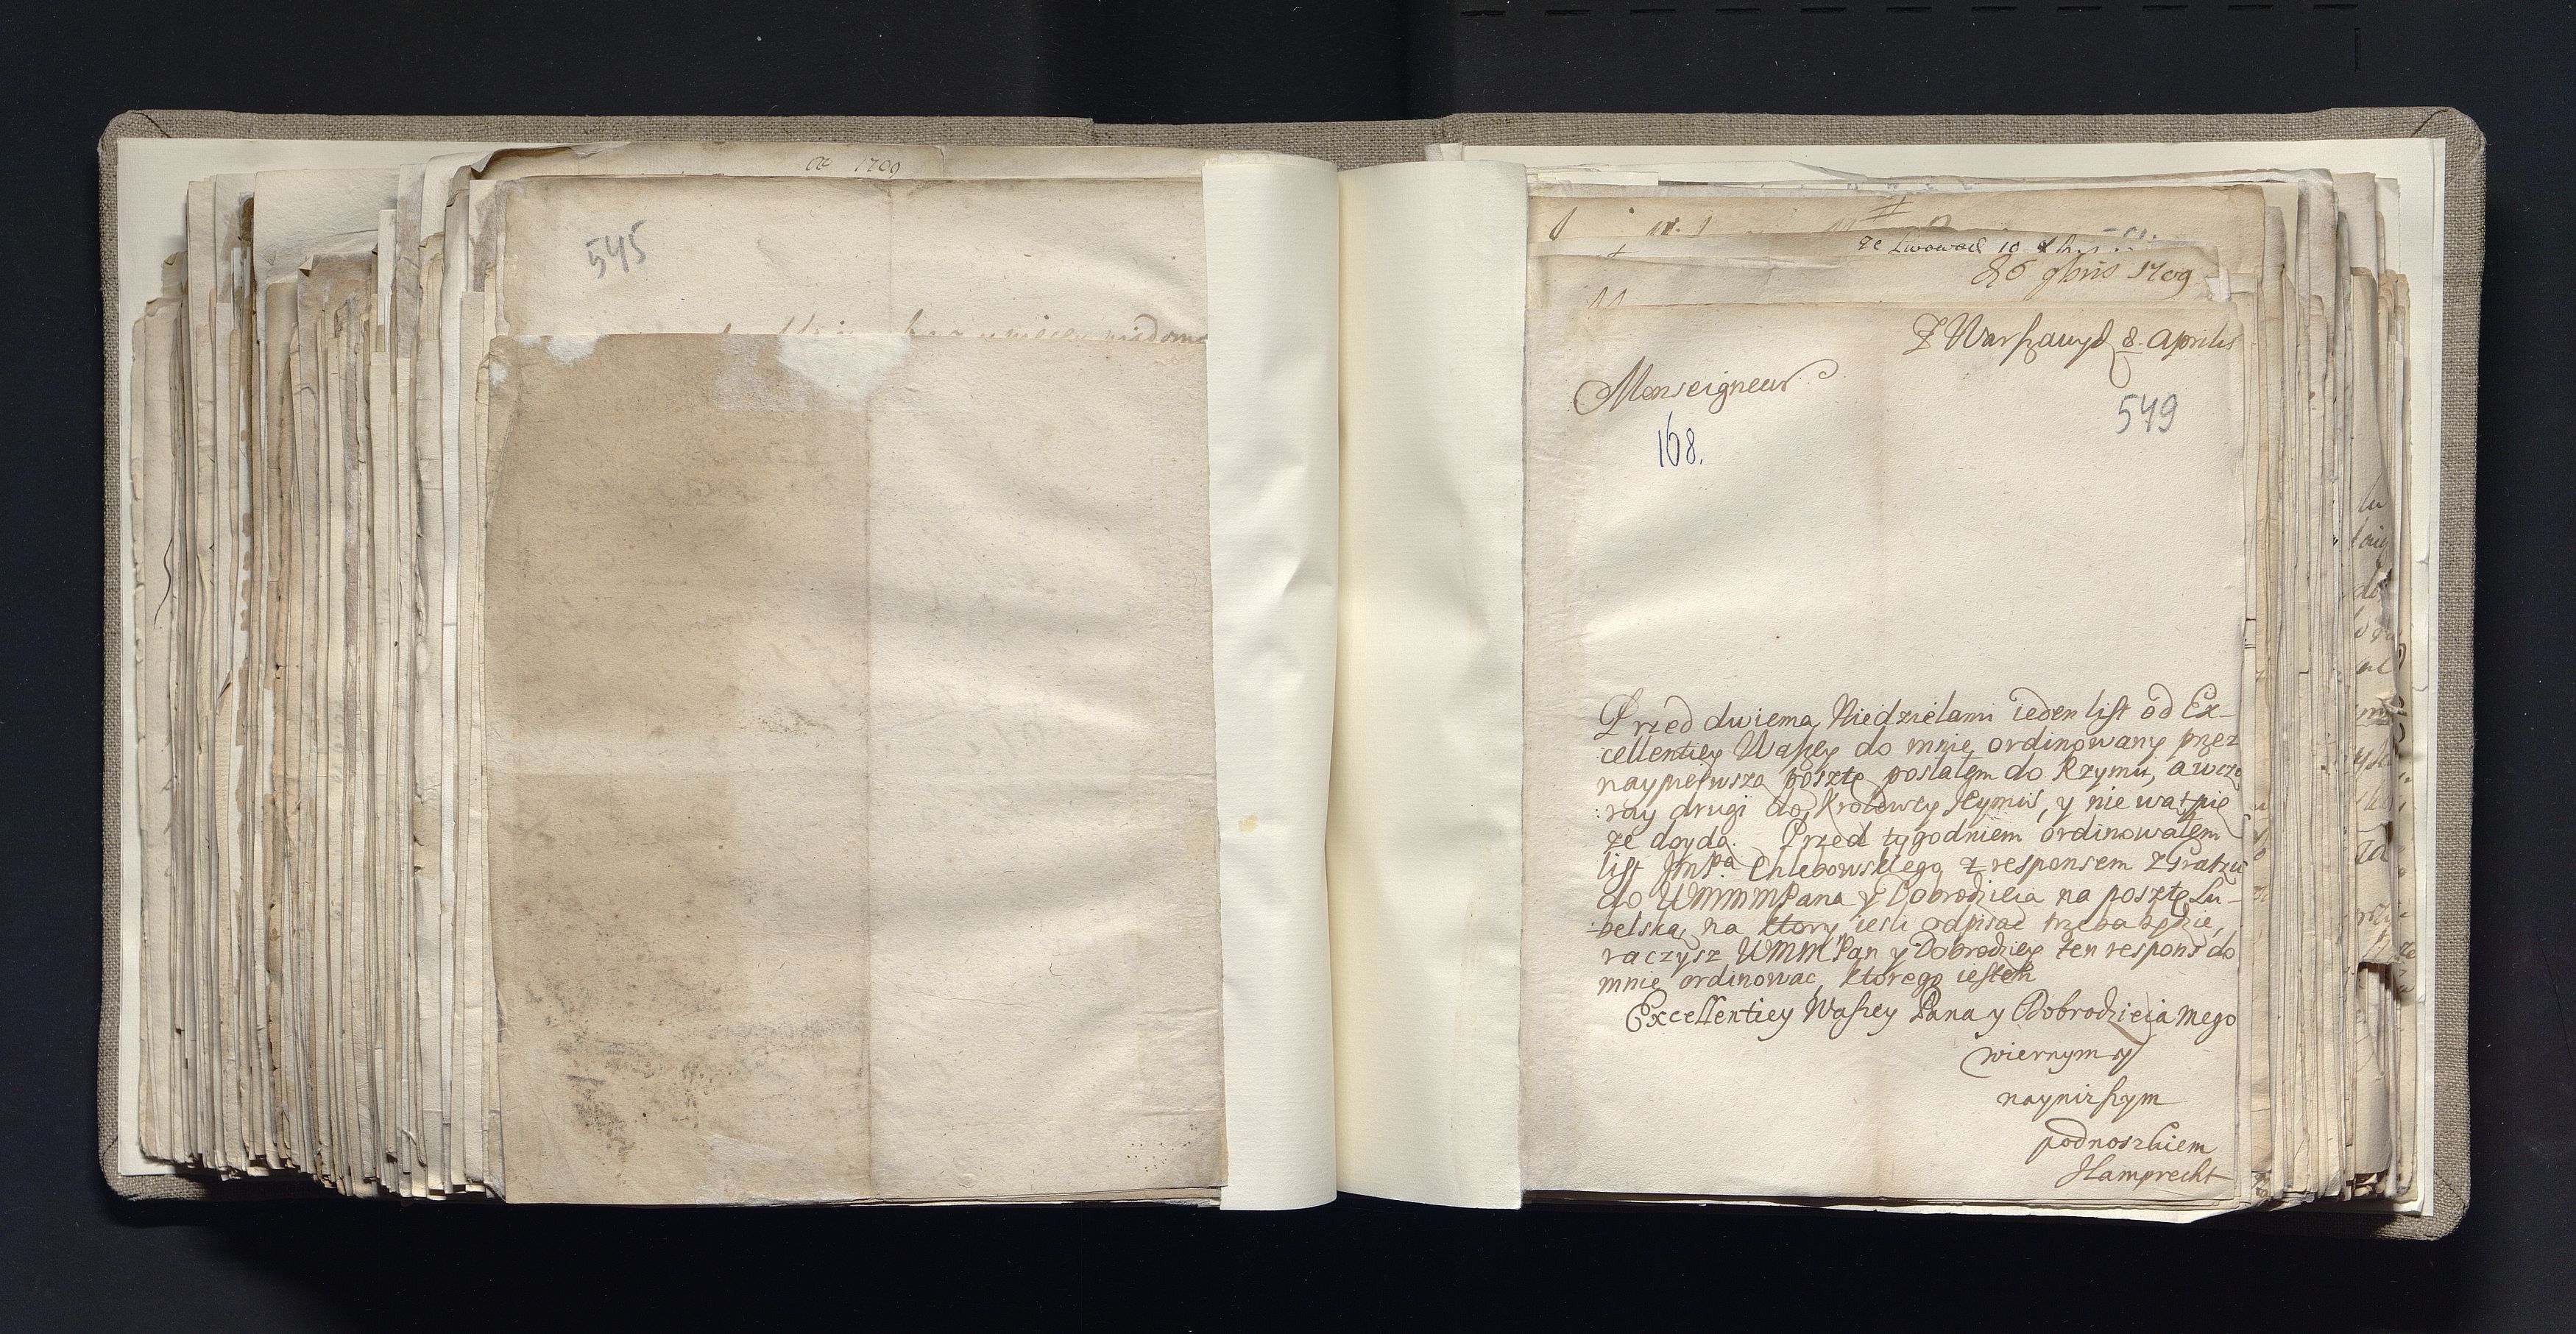 1709
545
wiadomo
Ze Lwowa d 10
26 9bris 1709
Z Warszawy d 8. Aprilis
Monseigneur
549
168.
Przed dwiema Niedzielami ieden list od Ex-
cellentiey Waszey do mnie ordinowany przez
naypierwszą posztę posłałem do Rzymu, a wczo
:ray drugi do Krolowey Jeymsi, y nie wątpię
że doydą. Przed tygodniem ordinowałem
list JmPa Chlebowskiego z responsem z Gratzu
do WMMMPana y Dobrodzieia na posztę Lu-
-belską, na ktory iesli odpisać trzeba będzie,
raczysz WMMPan y Dobrodziey ten respons do
mnie ordinowac, ktorego iestem
Excellentiey Waszey Pana y Dobrodzieia mego
wiernym y
nayniższym
podnoszkiem
Hamprecht